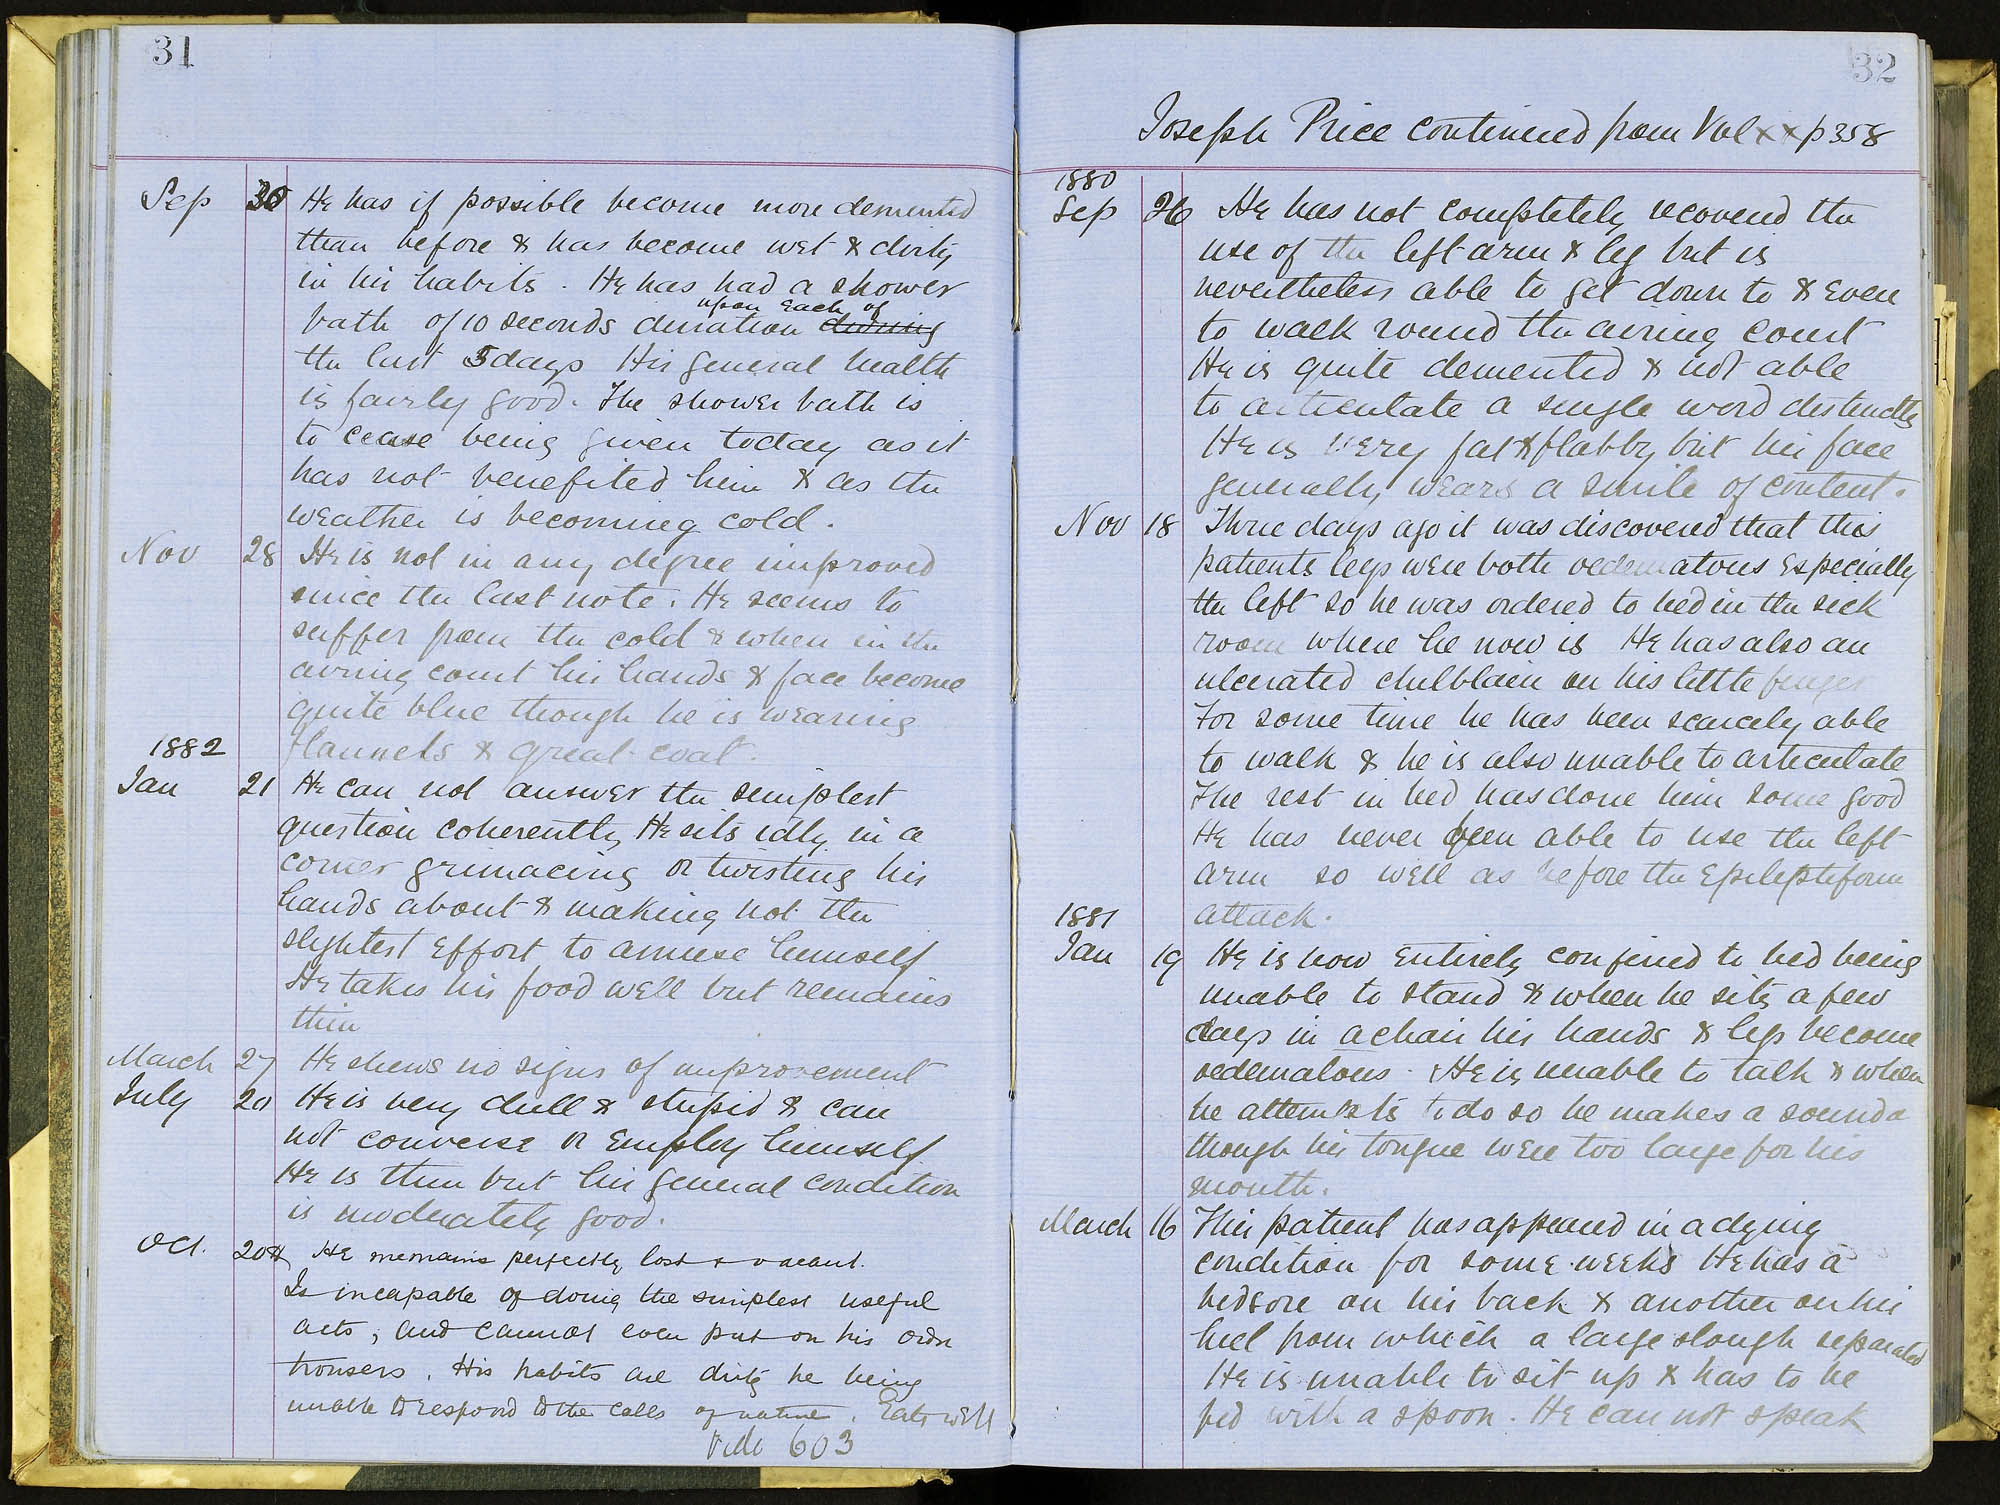 31
Sep 30 He has if possible become more demented
than before & has become wet & dirty
in his habits. He has had a shower
upon each of
bath of 10 seconds duration during
the last 5 days His general health
is fairly good. The shower bath is
to cease being given today as it
has not benefited him & as the
weather is becoming cold.
Nov 28 He is not in any degree improved
since the last note. He seems to
suffer from the cold & when in the
airing court his hands & face become
quite blue though he is wearing
flannels & great-coat.
1882
Jan 21 He can not answer the simplest
question coherently, He sits idly in a
corner grimacing or twisting his
hands about & making not the
slightest effort to amuse himself
He takes his food well but remains
thin
March 27 He shews no signs of improvement
July 20 He is very dull & stupid & can
not converse or employ himself
He is thin but his general condition
is moderately good.
Oct. 20th He remains perfectly lost & vacant.
Is incapable of doing the simplest useful
acts, and cannot even put on his own
trousers. His habits are dirty he being
unable to respond to the calls of nature. Eats well
Vide 603
32
Joseph Price continued from Vol xx p 358
1880
Sep 26 He has not completely recovered the
use of the left arm & leg but is
nevertheless able to get down to & even
to walk round the airing court
He is quite demented & not able
to articulate a single word distinctly
He is very fat & flabby but his face
generally wears a smile of content.
Nov 18 Three days ago it was discovered that this
patients legs were both oedematous especially
the left so he was ordered to bed in the sick
room where he now is He has also an
ulcerated chilblain on his little finger
For some time he has been scarcely able
to walk & he is also unable to articulate
The rest in bed has done him some good
He has never been able to use the left
arm so well as before the Epileptiform
attack.
1881
Jan 19 He is now entirely confined to bed being
unable to stand & when he sits a few
days in a chair his hands & legs become
oedematous. He is unable to talk & when
he attempts to do so he makes a sound a
though his tongue were too large for his
mouth.
March 16 This patient has appeared in a dying
condition for some weeks He has a
bedsore on his back & another on his
heel from which a large slough separated
He is unable to sit up & has to be
fed with a spoon. He can not speak